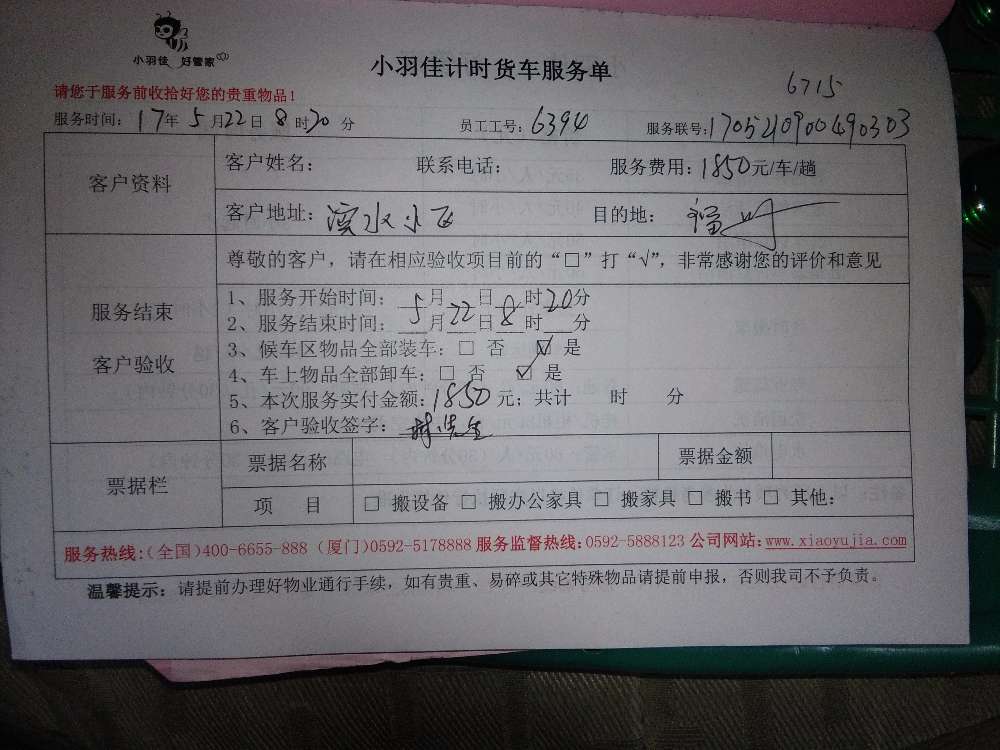 小羽佳 好管家
小羽佳计时货车服务单
6715
请您于服务前收拾好您的贵重物品!
服务时间: 17年 5 月22日 8 时20 分 员工工号: 6394 服务联号:1705210900490303
客户资料
客户姓名: 联系电话: 服务费用: 1850元/车/趟
客户地址: 滨水小区 目的地: 福州
服务结束
客户验收
尊敬的客户，请在相应验收项目前的“□”打“√”，非常感谢您的评价和意见
1、服务开始时间: 5月22日8时20分
2、服务结束时间: 月 日 时 分
3、候车区物品全部装车: □ 否 ☑ 是
4、车上物品全部卸车: □ 否 ☑ 是
5、本次服务实付金额: 1850 元；共计 时 分
6、客户验收签字: 林先生
票据栏
票据名称 票据金额
项 目 □ 搬设备 □ 搬办公家具 □ 搬家具 □ 搬书 □ 其他:
服务热线:(全国)400-6655-888 (厦门)0592-5178888 服务监督热线:0592-5888123 公司网站:www.xiaoyujia.com
温馨提示: 请提前办理好物业通行手续，如有贵重、易碎或其它特殊物品请提前申报，否则我司不予负责。